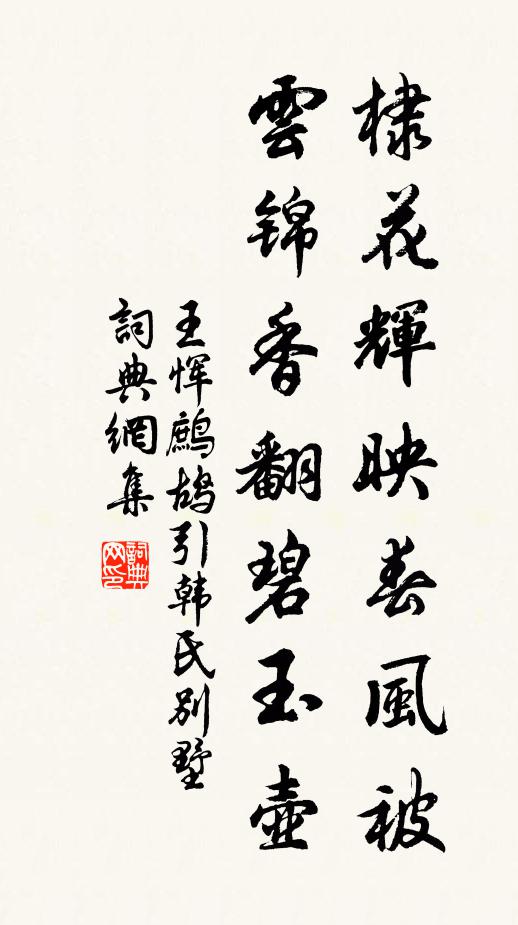 棣花輝映春風被
雲錦香翻碧玉壺
王恽鷓鴣引韩氏别墅
詞典網集
詞典
网印